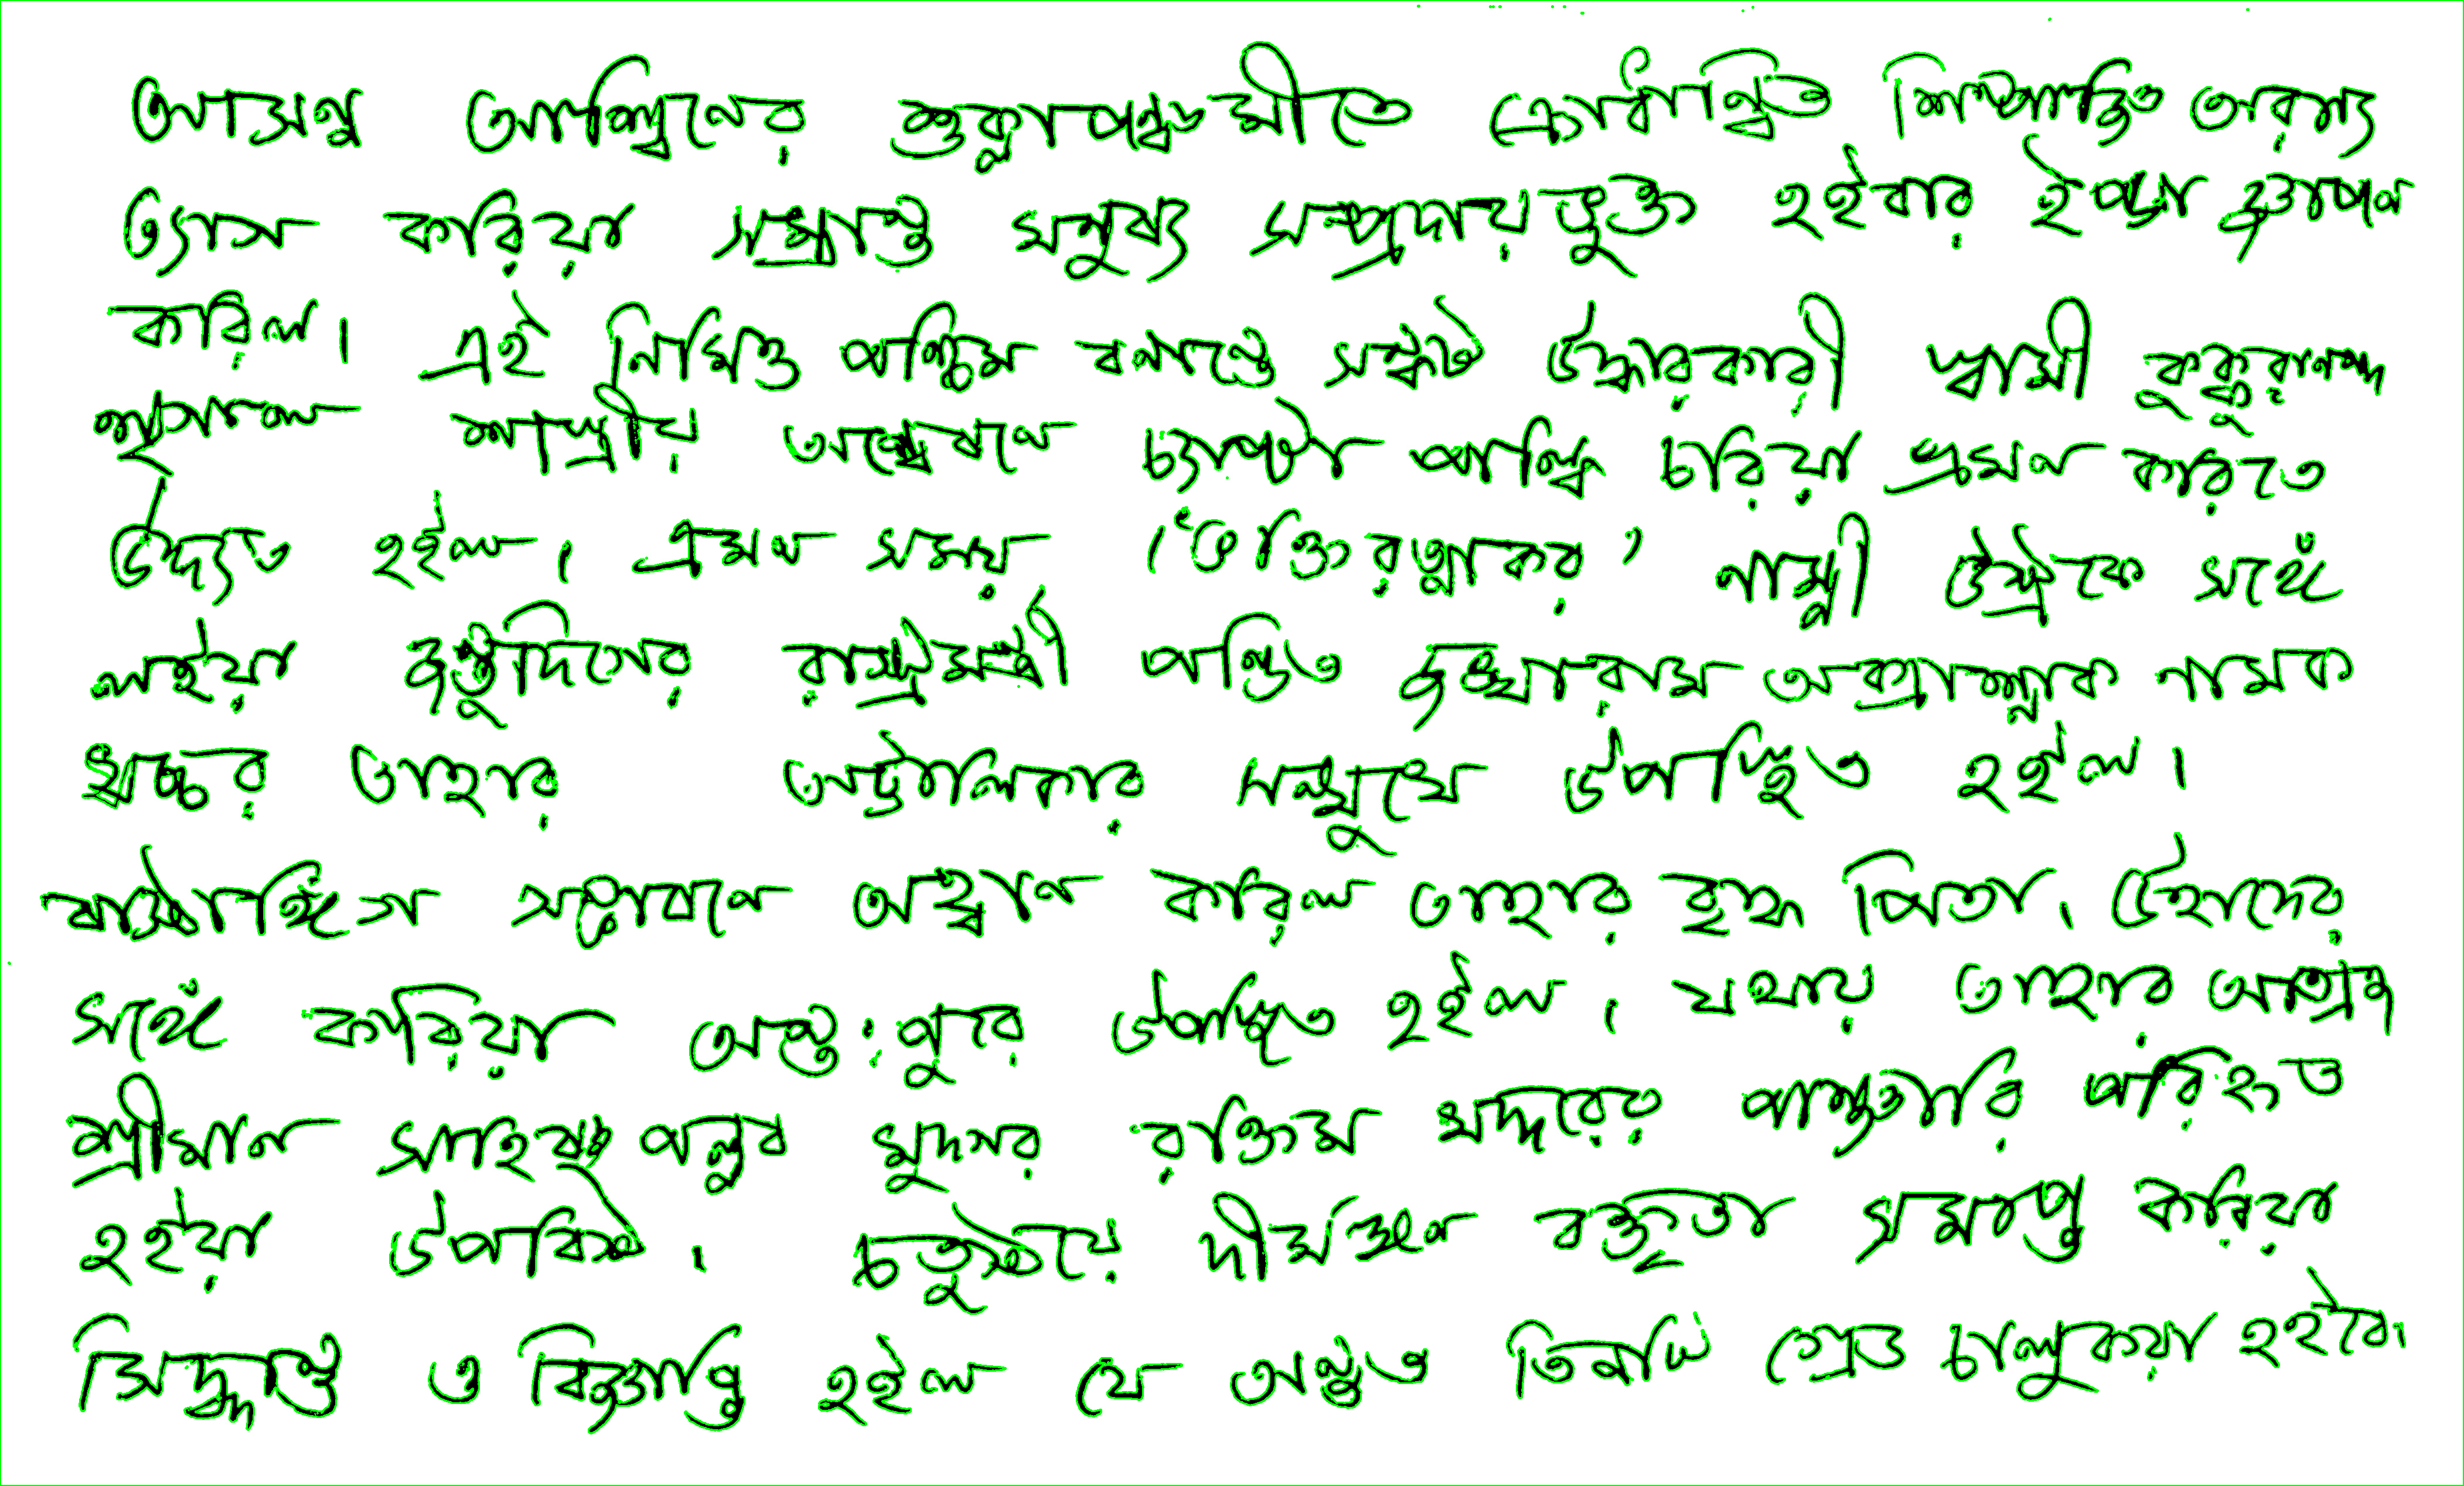 আসন্ন আশ্বিনের শুক্লাপঞ্চমীতে ক্রোধান্বিত শিম্পাঞ্জি অরণ্য
ত্যাগ করিয়া সম্ভ্রান্ত মনুষ্য সম্প্রদায়ভুক্ত হইবার ইচ্ছা জ্ঞাপন
করিল। এই নিমিত্ত পশ্চিম বনান্তে সঙ্কট উদ্ধারকারী স্বামী কুক্কুরানন্দ
শৃগাল শাস্ত্রীয় অন্বেষণে চ্যাপ্টা পাল্কি চরিয়া ভ্রমণ করিতে
উদ্যত হইল। এমন সময় 'ভক্তিরত্নাকর' নাম্নী উষ্ট্রকে সঙ্গে
লইয়া জন্তুদিগের রাষ্ট্রমন্ত্রী পণ্ডিত দুঃখারাম নামক
খচ্চর তাহার অট্টালিকার সম্মুখে উপস্থিত হইল।
ষাষ্টাঙ্গিগ সম্ভাষণে আহ্বান করিল তাহার বৃদ্ধ পিতা। উহাদের
সঙ্গে করিয়া অন্তঃপুরে উপস্থিত হইল। যথায় তাহার আত্মজ
শ্রীমান পল্লব মুদগর রক্তিম খদ্দরের পরিহিত
হইয়া উপবিষ্ট। চতুষ্টয়ে দীর্ঘক্ষণ বক্তৃতা সমাপ্ত করিয়া
সিদ্ধান্ত ও বিজ্ঞপ্তি হইল যে অন্তত তিনটি চালু করা হইবে।